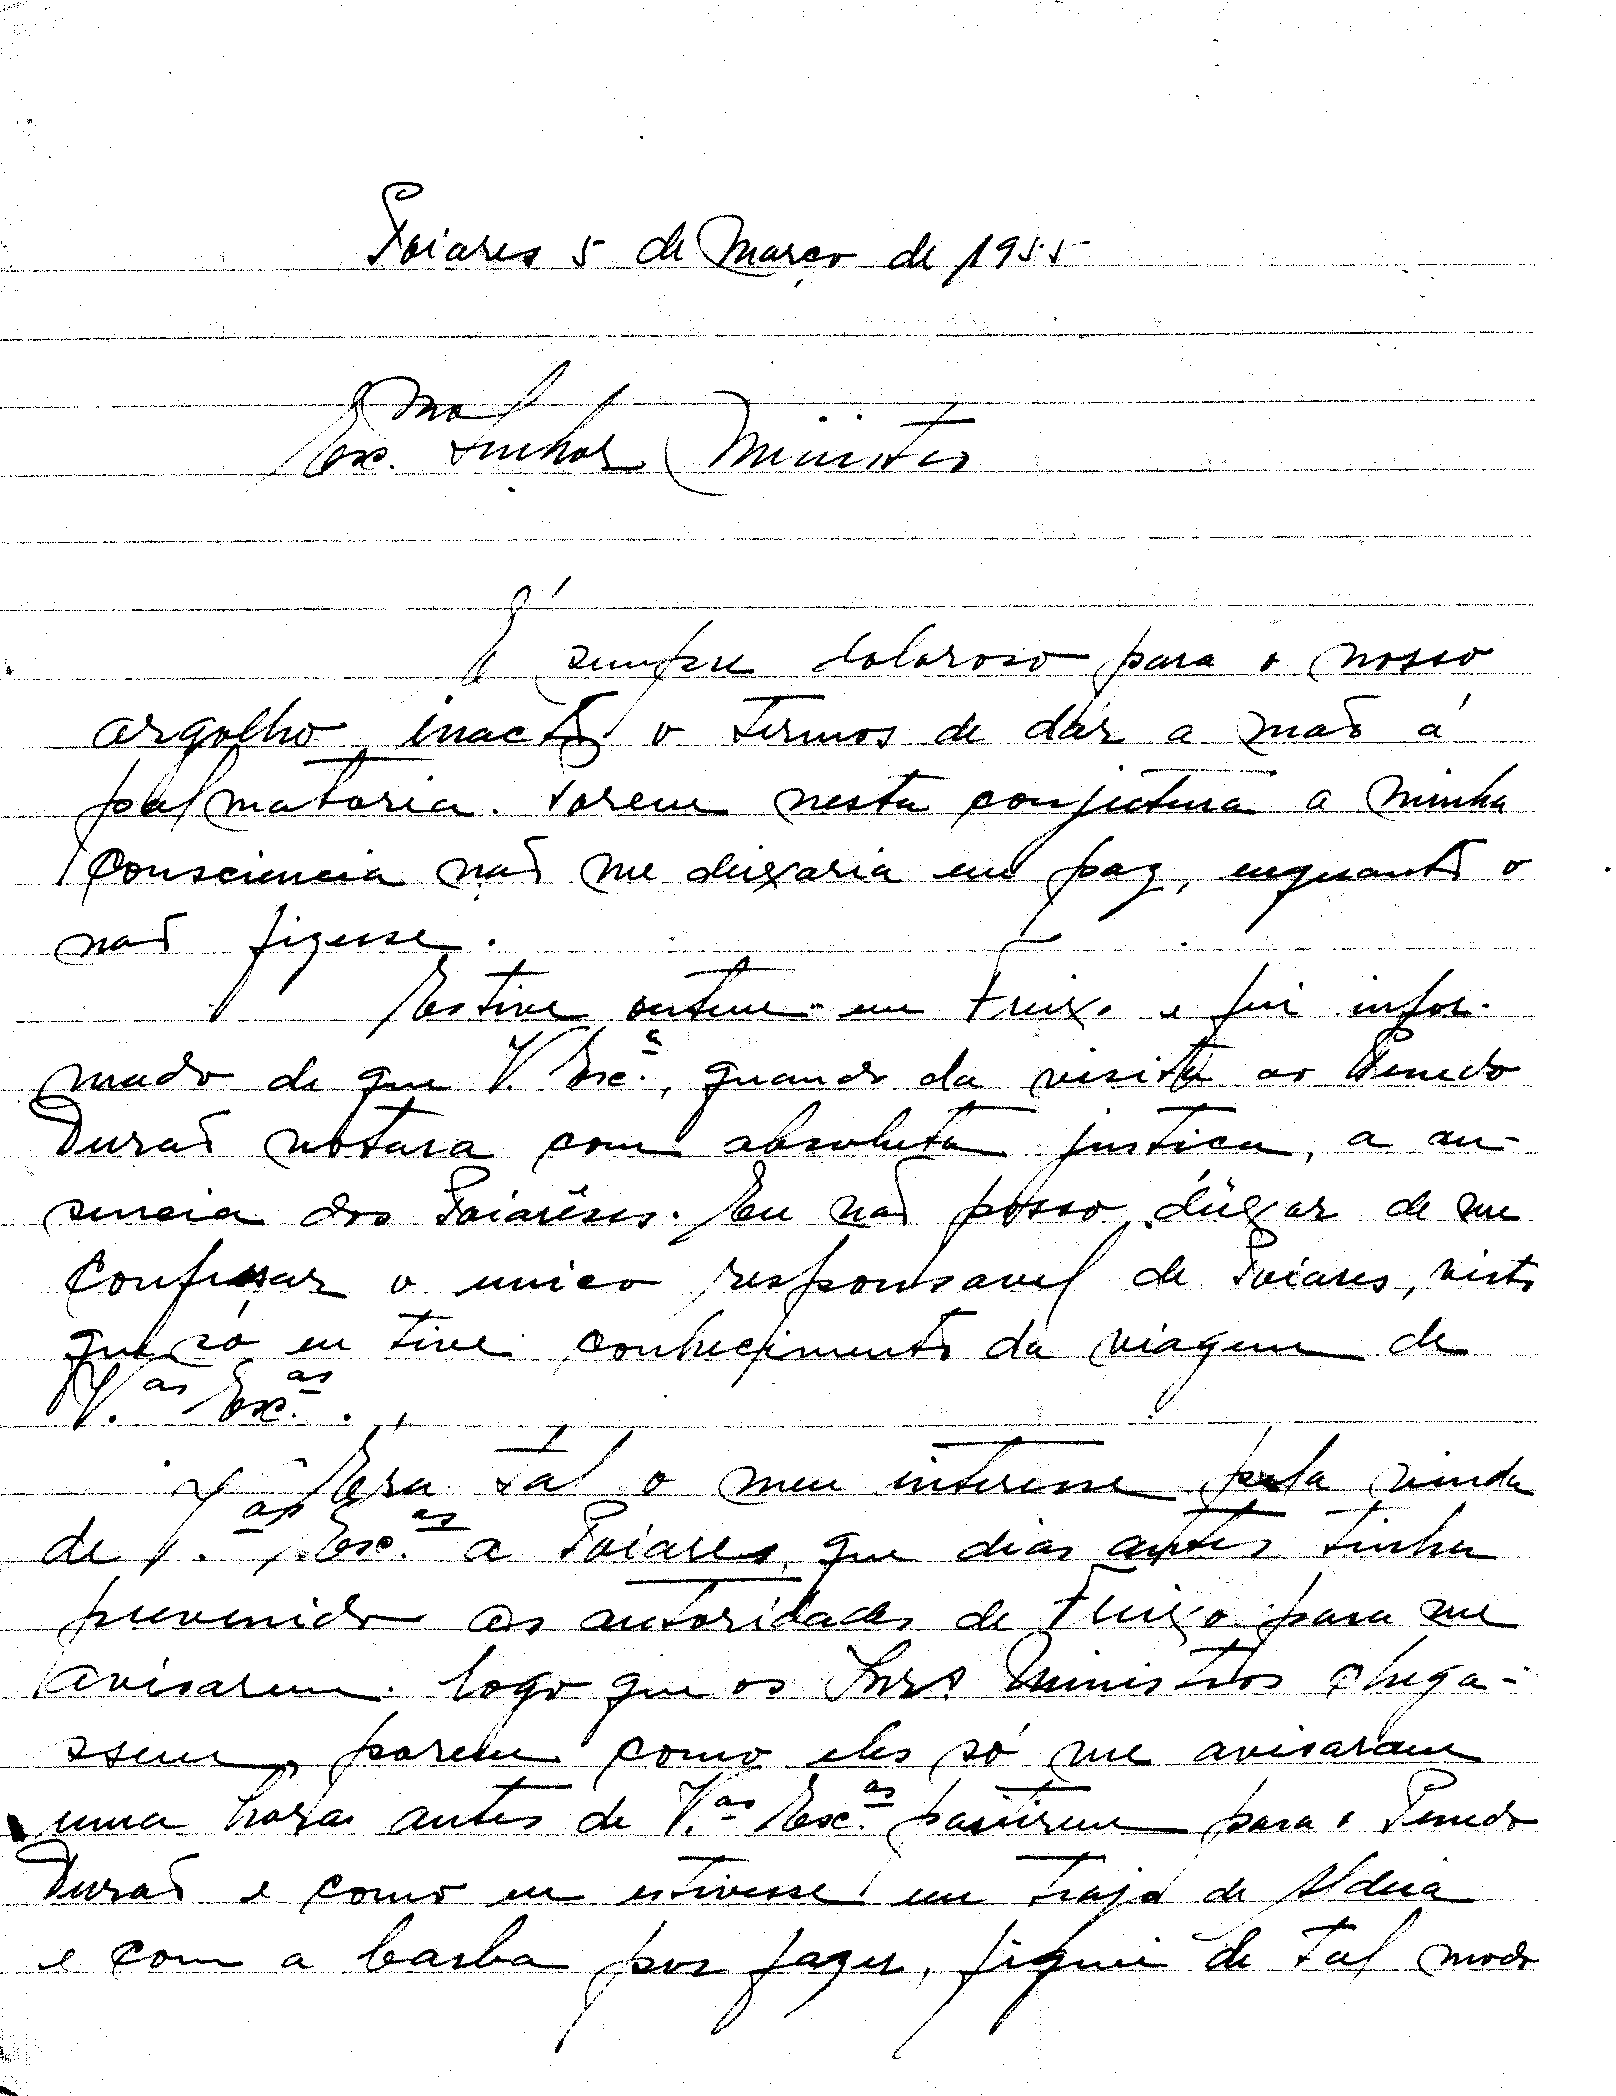 Poiares 5 de Março de 1955
Exmo. Senhor Ministro
É sempre doloroso para o nosso
orgolho inacto o termos de dár a maõ á
palmatoria. Porem nesta conjectura a minha
consciencia naõ me deixaria em paz, enquanto o
naõ fizesse.
Estive ontem em Freixo e fui infor-
mado de que V. Exc.ª, quando da visita ao Penedo
Duraõ notara com absoluta justica, a au-
sencia dos Poiarêses. Eu naõ posso deixar de me
confessar o unico responsavel de Poiares, visto
que só eu tive conhecimento da viagem de
V.as Exc.as.
Era tál o meu interesse pela vinda
de V.as Exc.as a Poiares, que dias antes tinha
prevenido as autoridades de Freixo para me
avisarem logo que os Snrs Ministros chega-
ssem, porem como eles só me avisaram
uma hora antes de V.as Exc.as partirem para o Penedo
Duraõ e como eu estivesse em trajo de Aldeia
e com a barba por fazer, fiquei de tal modo